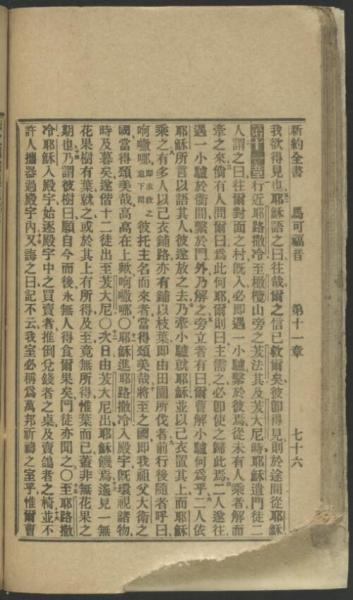 新約全書 馬可福音 第十一章 七十六
我欲得見也耶穌語之曰往哉爾之信已救爾矣彼卽得見則於途間從耶穌
第十一章行近耶路撒冷至橄欖山旁之伯法其及伯大尼時耶穌遣門徒二
人謂之曰往爾對面之村旣入必卽遇一小驢繫於彼爲從未有人乘者解而
牽之來倘有人問爾曰爲此何耶爾則曰主需之必卽使之歸此焉二人遂往
遇一小驢於衢間繫於門外乃解之旁立者有曰爾曹解小驢何爲乎二人依
耶穌所言以語其人彼遂放之去乃牽小驢就耶穌並以己衣置其上而耶穌
乘之有多人以己衣鋪路亦有鋪以枝葉卽由田園所伐者前行後隨者呼曰
彼托主名而來者當得頌美哉將至之國卽我祖父大衛之
國當得頌美哉高高在上歟㗒㘄○耶穌進耶路撒冷入殿宇旣環視諸物
時及暮矣遂偕十二徒出至伯大尼○次日由伯大尼出耶穌饑焉遙見一無
花果樹有葉就之或於其上有所得及至竟無所得惟葉而已蓋非無花果之
期也乃謂彼樹曰願自今而後永無人得食爾果矣門徒亦聞之○至耶路撒
冷耶穌入殿宇始逐殿宇中之買賣者推倒兌錢者之桌及賣鴿者之椅並不
許人攜器過殿宇內又誨之曰記不云我室必稱爲萬邦祈禱之室乎惟爾曹